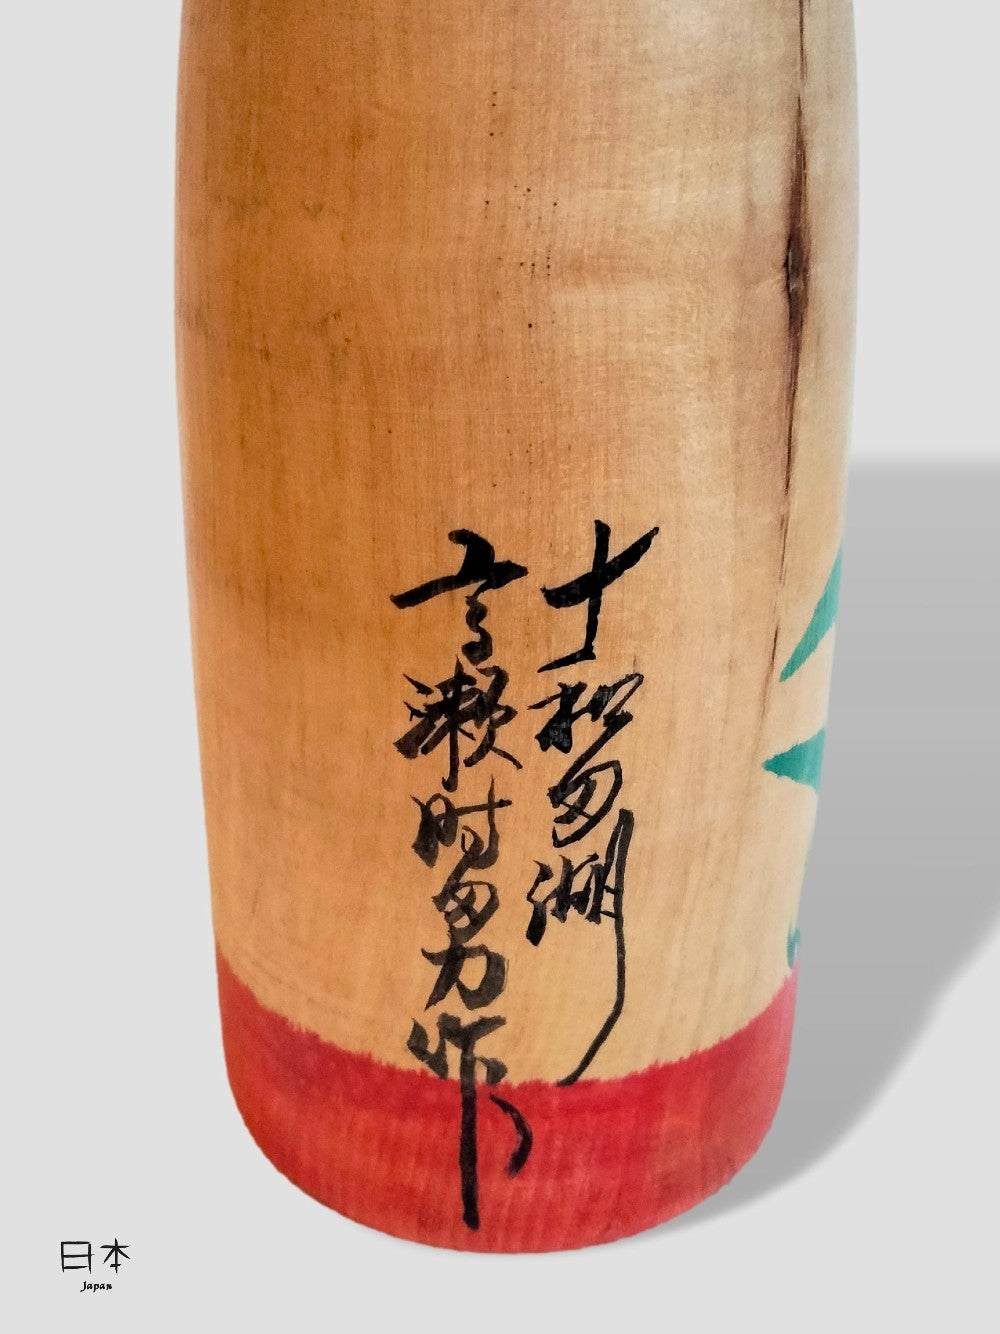 十和田湖
高瀬時男作
日本
Japan